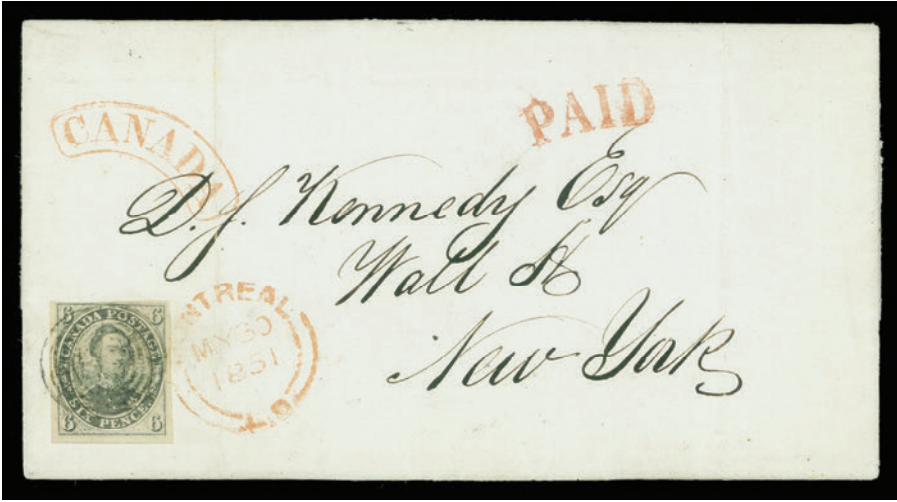 CANADA
PAID
D. J. Kennedy Esq
Wall St
New York
6 6
CANADA POSTAGE
SIX PENCE
6 6
MONTREAL
MY 30
1851
L.C.